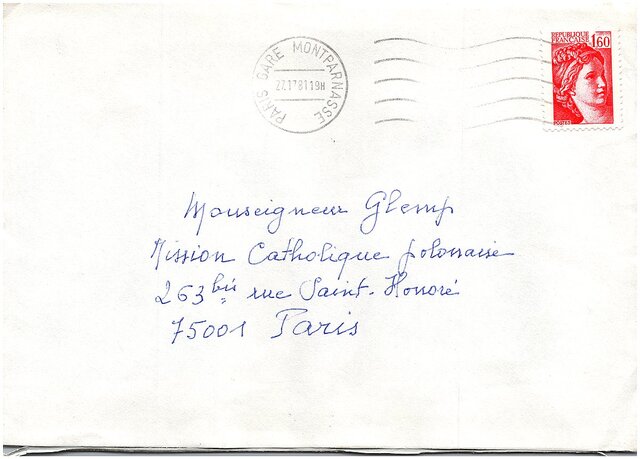 PARIS GARE MONTPARNASSE
REPUBLIQUE
FRANCAISE
1,60
POSTES
Monseigneur Glemp
Mission Catholique polonaise
263 bis rue Saint-Honoré
75001 Paris